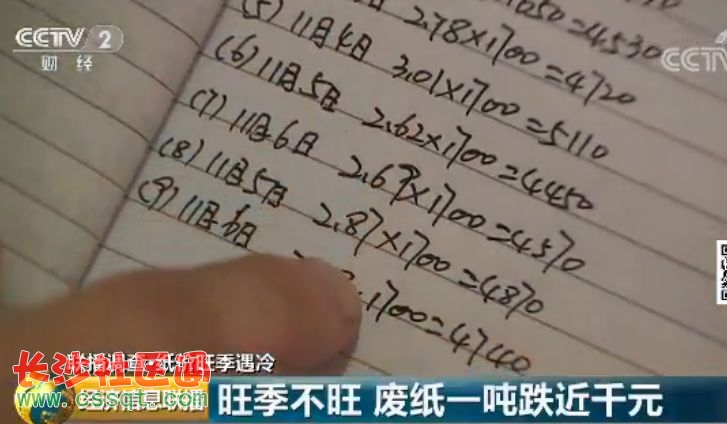 CCTV 2
财经
CCTV
1050=4530
(5) 11月4日 2.78×1700=4720
(6) 11月5日 3.01×1700=5110
(7) 11月6日 2.62×1700=4450
(8) 11月5日 2.69×1700=4570
(9) 11月6日 2.87×1700=4870
1700=4740
联播调查·纸价旺季遇冷
长沙社区圈
经济信息联播
旺季不旺 废纸一吨跌近千元